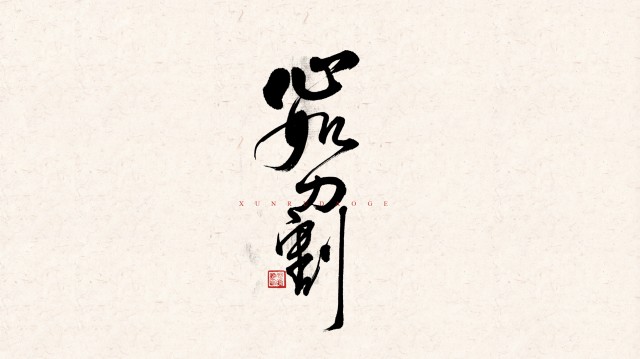 心如刀割
X U N R D O G E